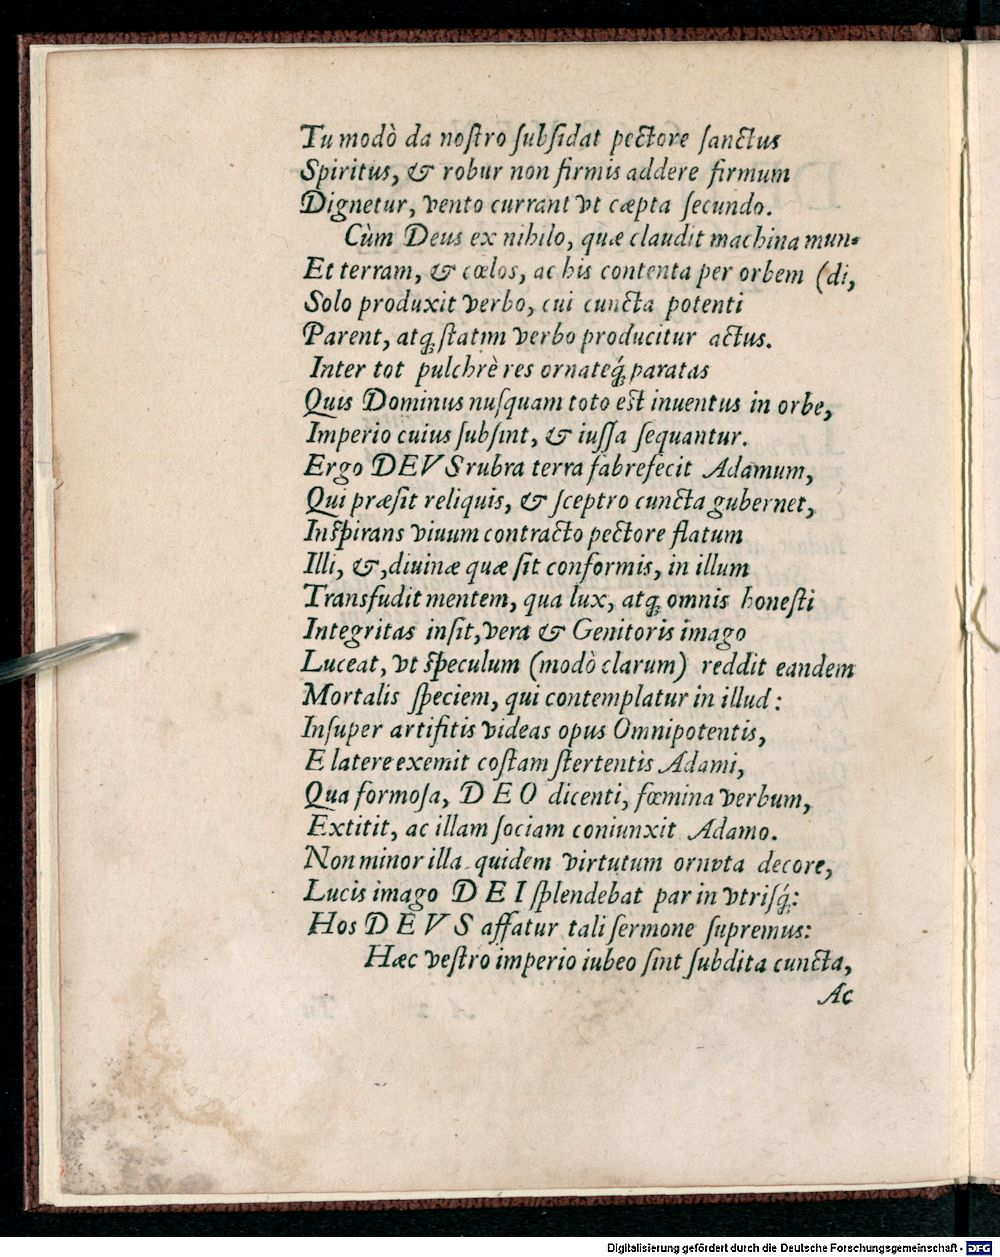 Tu modò da noſtro ſubſidat pectore ſanctus
Spiritus, & robur non firmis addere firmum
Dignetur, vento currant vt cæpta ſecundo.
Cùm Deus ex nihilo, quæ claudit machina mun-
Et terram, & cœlos, ac his contenta per orbem (di,
Solo produxit verbo, cui cuncta potenti
Parent, atq́; ſtatim verbo producitur actus.
Inter tot pulchrè res ornateq́; paratas
Quis Dominus nuſquam toto eſt inuentus in orbe,
Imperio cuius ſubſint, & iuſſa ſequantur.
Ergo DEVS rubra terra fabrefecit Adamum,
Qui præſit reliquis, & ſceptro cuncta gubernet,
Inſpirans viuum contracto pectore flatum
Illi, &, diuinæ quæ ſit conformis, in illum
Transfudit mentem, qua lux, atq; omnis honeſti
Integritas inſit, vera & Genitoris imago
Luceat, vt ſpeculum (modò clarum) reddit eandem
Mortalis ſpeciem, qui contemplatur in illud:
Inſuper artifitis videas opus Omnipotentis,
E latere exemit coſtam ſtertentis Adami,
Qua formoſa, DEO dicenti, fœmina verbum,
Extitit, ac illam ſociam coniunxit Adamo.
Non minor illa quidem virtutum ornvta decore,
Lucis imago DEI ſplendebat par in vtriſq́;:
Hos DEVS affatur tali ſermone ſupremus:
Hæc veſtro imperio iubeo ſint ſubdita cuncta,
Ac
Digitalisierung gefördert durch die Deutsche Forschungsgemeinschaft - DFG